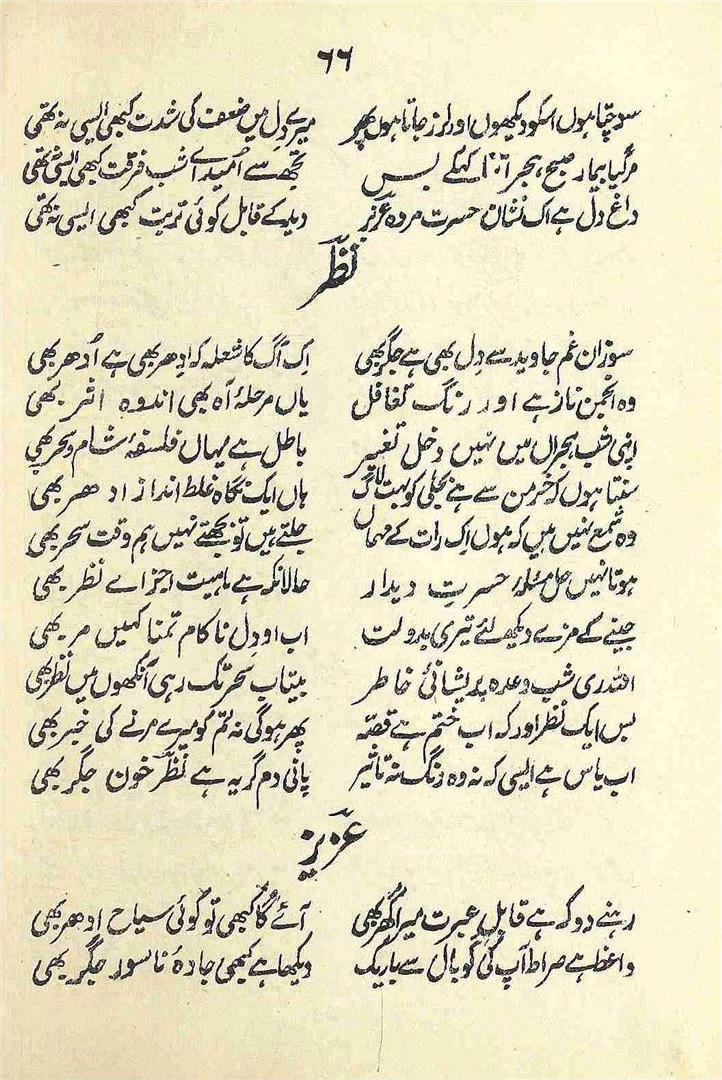 ۶۶
سوچتا ہوں اسکو دیکھوں اور لرز جاتا ہوں پھر میرے دل میں ضعف کی شدت کبھی ایسی نہ تھی
مر گیا بیمار صبح ہجر کہکے بس تجھ سے اُمید اے شب فرقت کبھی ایسی نہ تھی
داغ دل ہے اک نشان حسرت مردہ عزیز دید کے قابل کوئی تربت کبھی ایسی نہ تھی
نظر
سوزان غم جاوید سے دِل بھی ہے جگر بھی اِک آگ کا شعلہ کہ اِدھر بھی ہے اُدھر بھی
وہ انجمن ناز ہے اور رنگ تغافل یاں مرحلۂ آہ بھی اندوہ اثر بھی
اپنی شب ہجراں میں نہیں دخل تغیر باطل ہے یہاں فلسفۂ شام و سحر بھی
سنتا ہوں کہ خرمن سے ہے بجلی کو بہت لاگ ہاں ایک نگاہ غلط انداز ادھر بھی
وہ شمع نہیں ہیں کہ ہوں اِک رات کے مہماں جلتے ہیں تو بجھتے نہیں ہم وقت سحر بھی
ہوتا نہیں حل مسئلۂ حسرتِ دیدار حالانکہ ہے ماہیت اجزاے نظر بھی
جینے کے مزے دیکھ لئے تیری بدولت اب او دِل ناکام تمنا کہیں مر بھی
اللہ ری شب وعدہ پریشانئ خاطر بیتاب سحر تک رہی آنکھوں میں نظر بھی
بس ایک نظر اور کہ اب ختم ہے قصّہ پھر ہوگی نہ تم کو میرے مرنے کی خبر بھی
اب یاس ہے ایسی کہ نہ وہ رنگ نہ تاثیر پانی دم گریہ ہے نظر خون جگر بھی
عزیز
رہنے دو کہ ہے قابلِ عبرت میرا گھر بھی آئے گا کبھی تو کوئی سیاح ادھر بھی
واعظا ہے صراط آپ کی گو بال سے باریک دیکھا ہے کبھی جادۂ ناسور جگر بھی